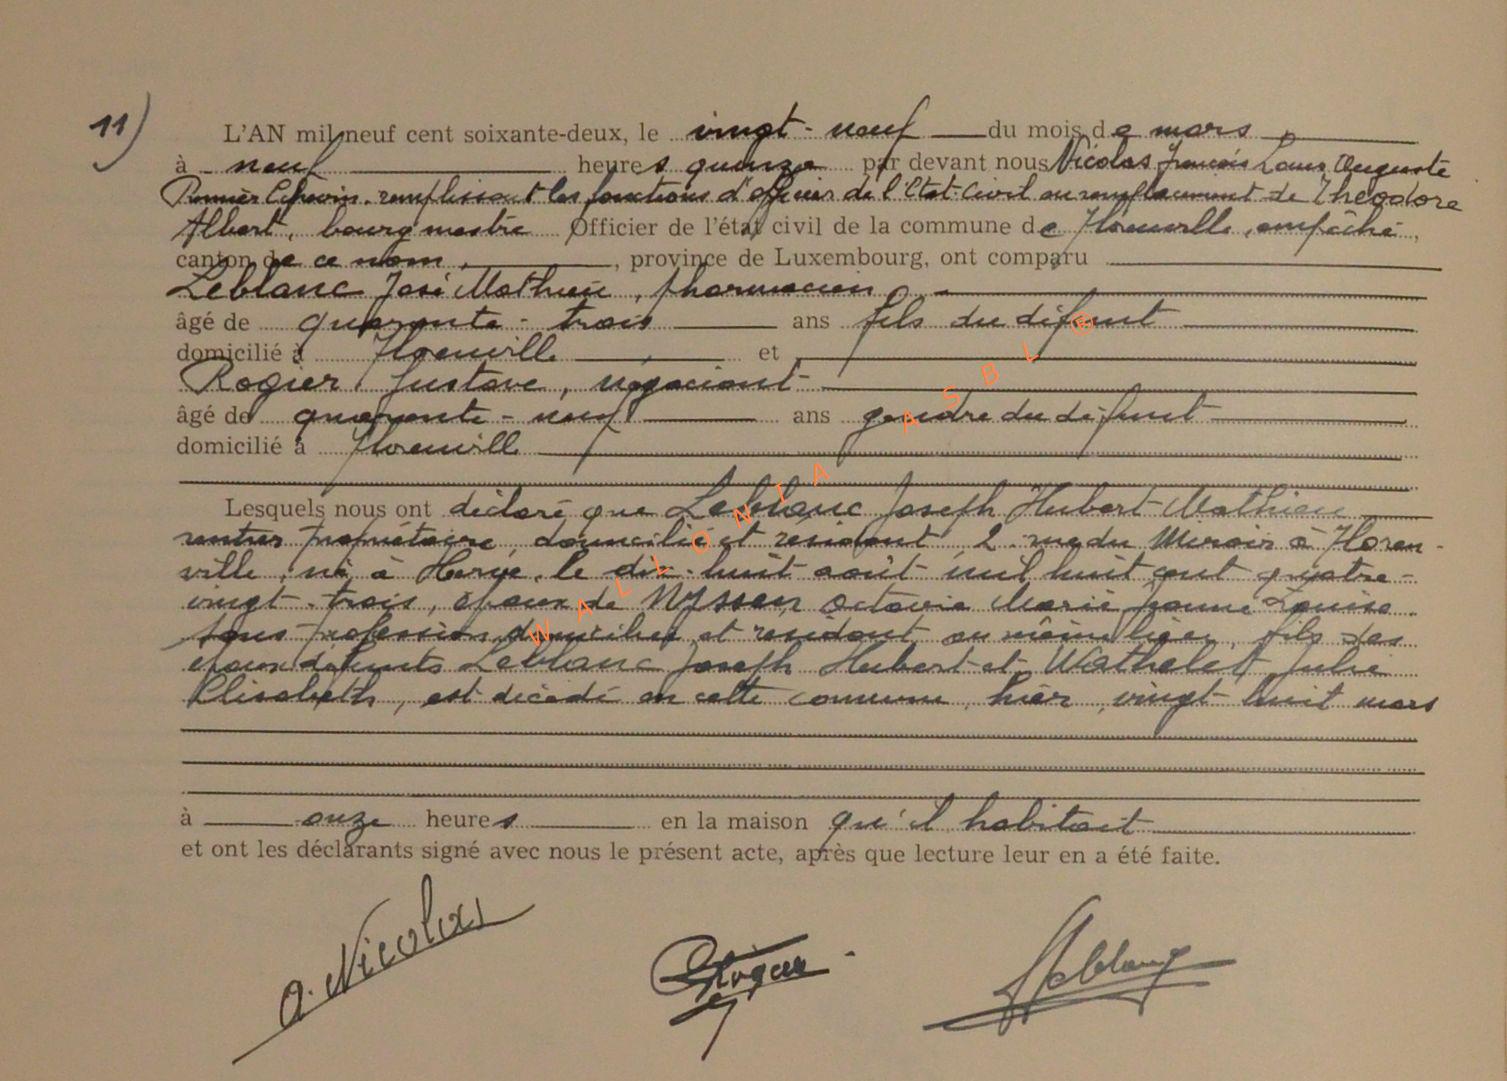 11)
L'AN mil neuf cent soixante-deux, le vingt-neuf du mois de mars
à neuf heures quinze par devant nous Nicolas François Louis Auguste
Premier Echevin, remplissant les fonctions d'officier de l'Etat-Civil en remplacement de Théodore
Albert, bourgmestre Officier de l'état civil de la commune de Florenville, empêché,
canton de ce nom, province de Luxembourg, ont comparu
Leblanc José Mathieu, pharmacien
âgé de quarante-trois ans fils du défunt
domicilié à Florenville et
Rogier Gustave, négociant
âgé de quarante-neuf ans gendre du défunt
domicilié à Florenville
Lesquels nous ont déclaré que Leblanc Joseph Hubert Mathieu
rentier propriétaire, domicilié et résidant 2 rue du Miroir à Floren-
ville, né à Herve, le dix-huit août mil huit cent quatre-
vingt-trois, époux de Nyssen Octavie Marie Jeanne Louise
sans profession, domiciliée et résidant au même lieu, fils des
époux défunts Leblanc Joseph Hubert et Wathelet Julie
Elisabeth, est décédé en cette commune, hier, vingt-huit mars
à onze heures en la maison qu'il habitait
et ont les déclarants signé avec nous le présent acte, après que lecture leur en a été faite.
A. Nicolas
GRogier
JLeblanc
WALLONIA ASBL ®